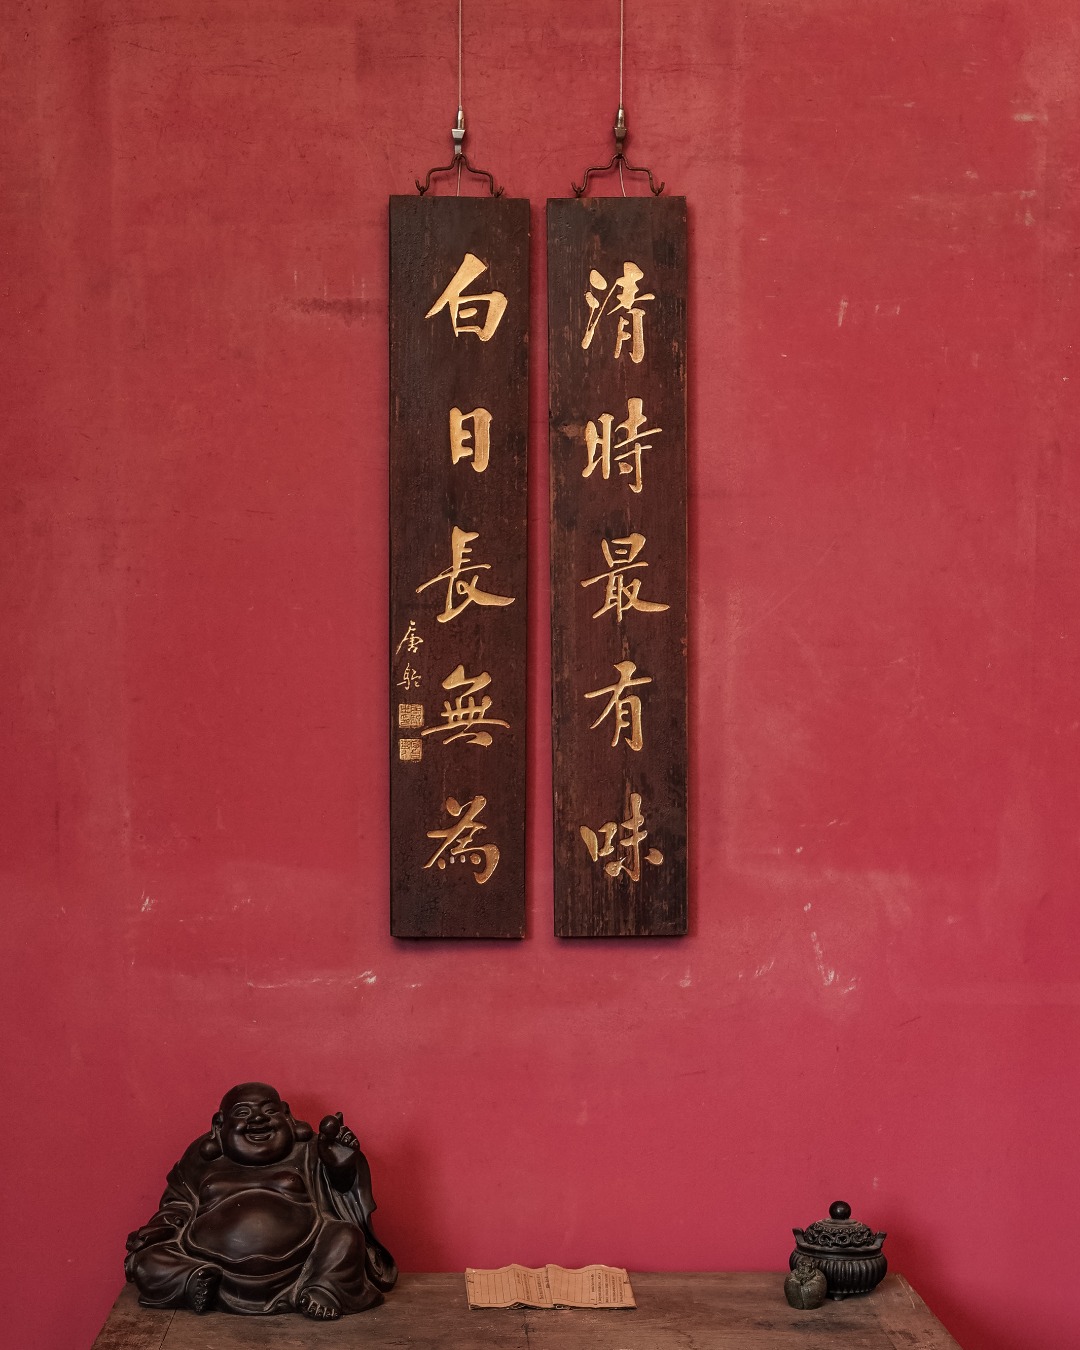 清時最有味
白日長無為
唐駝